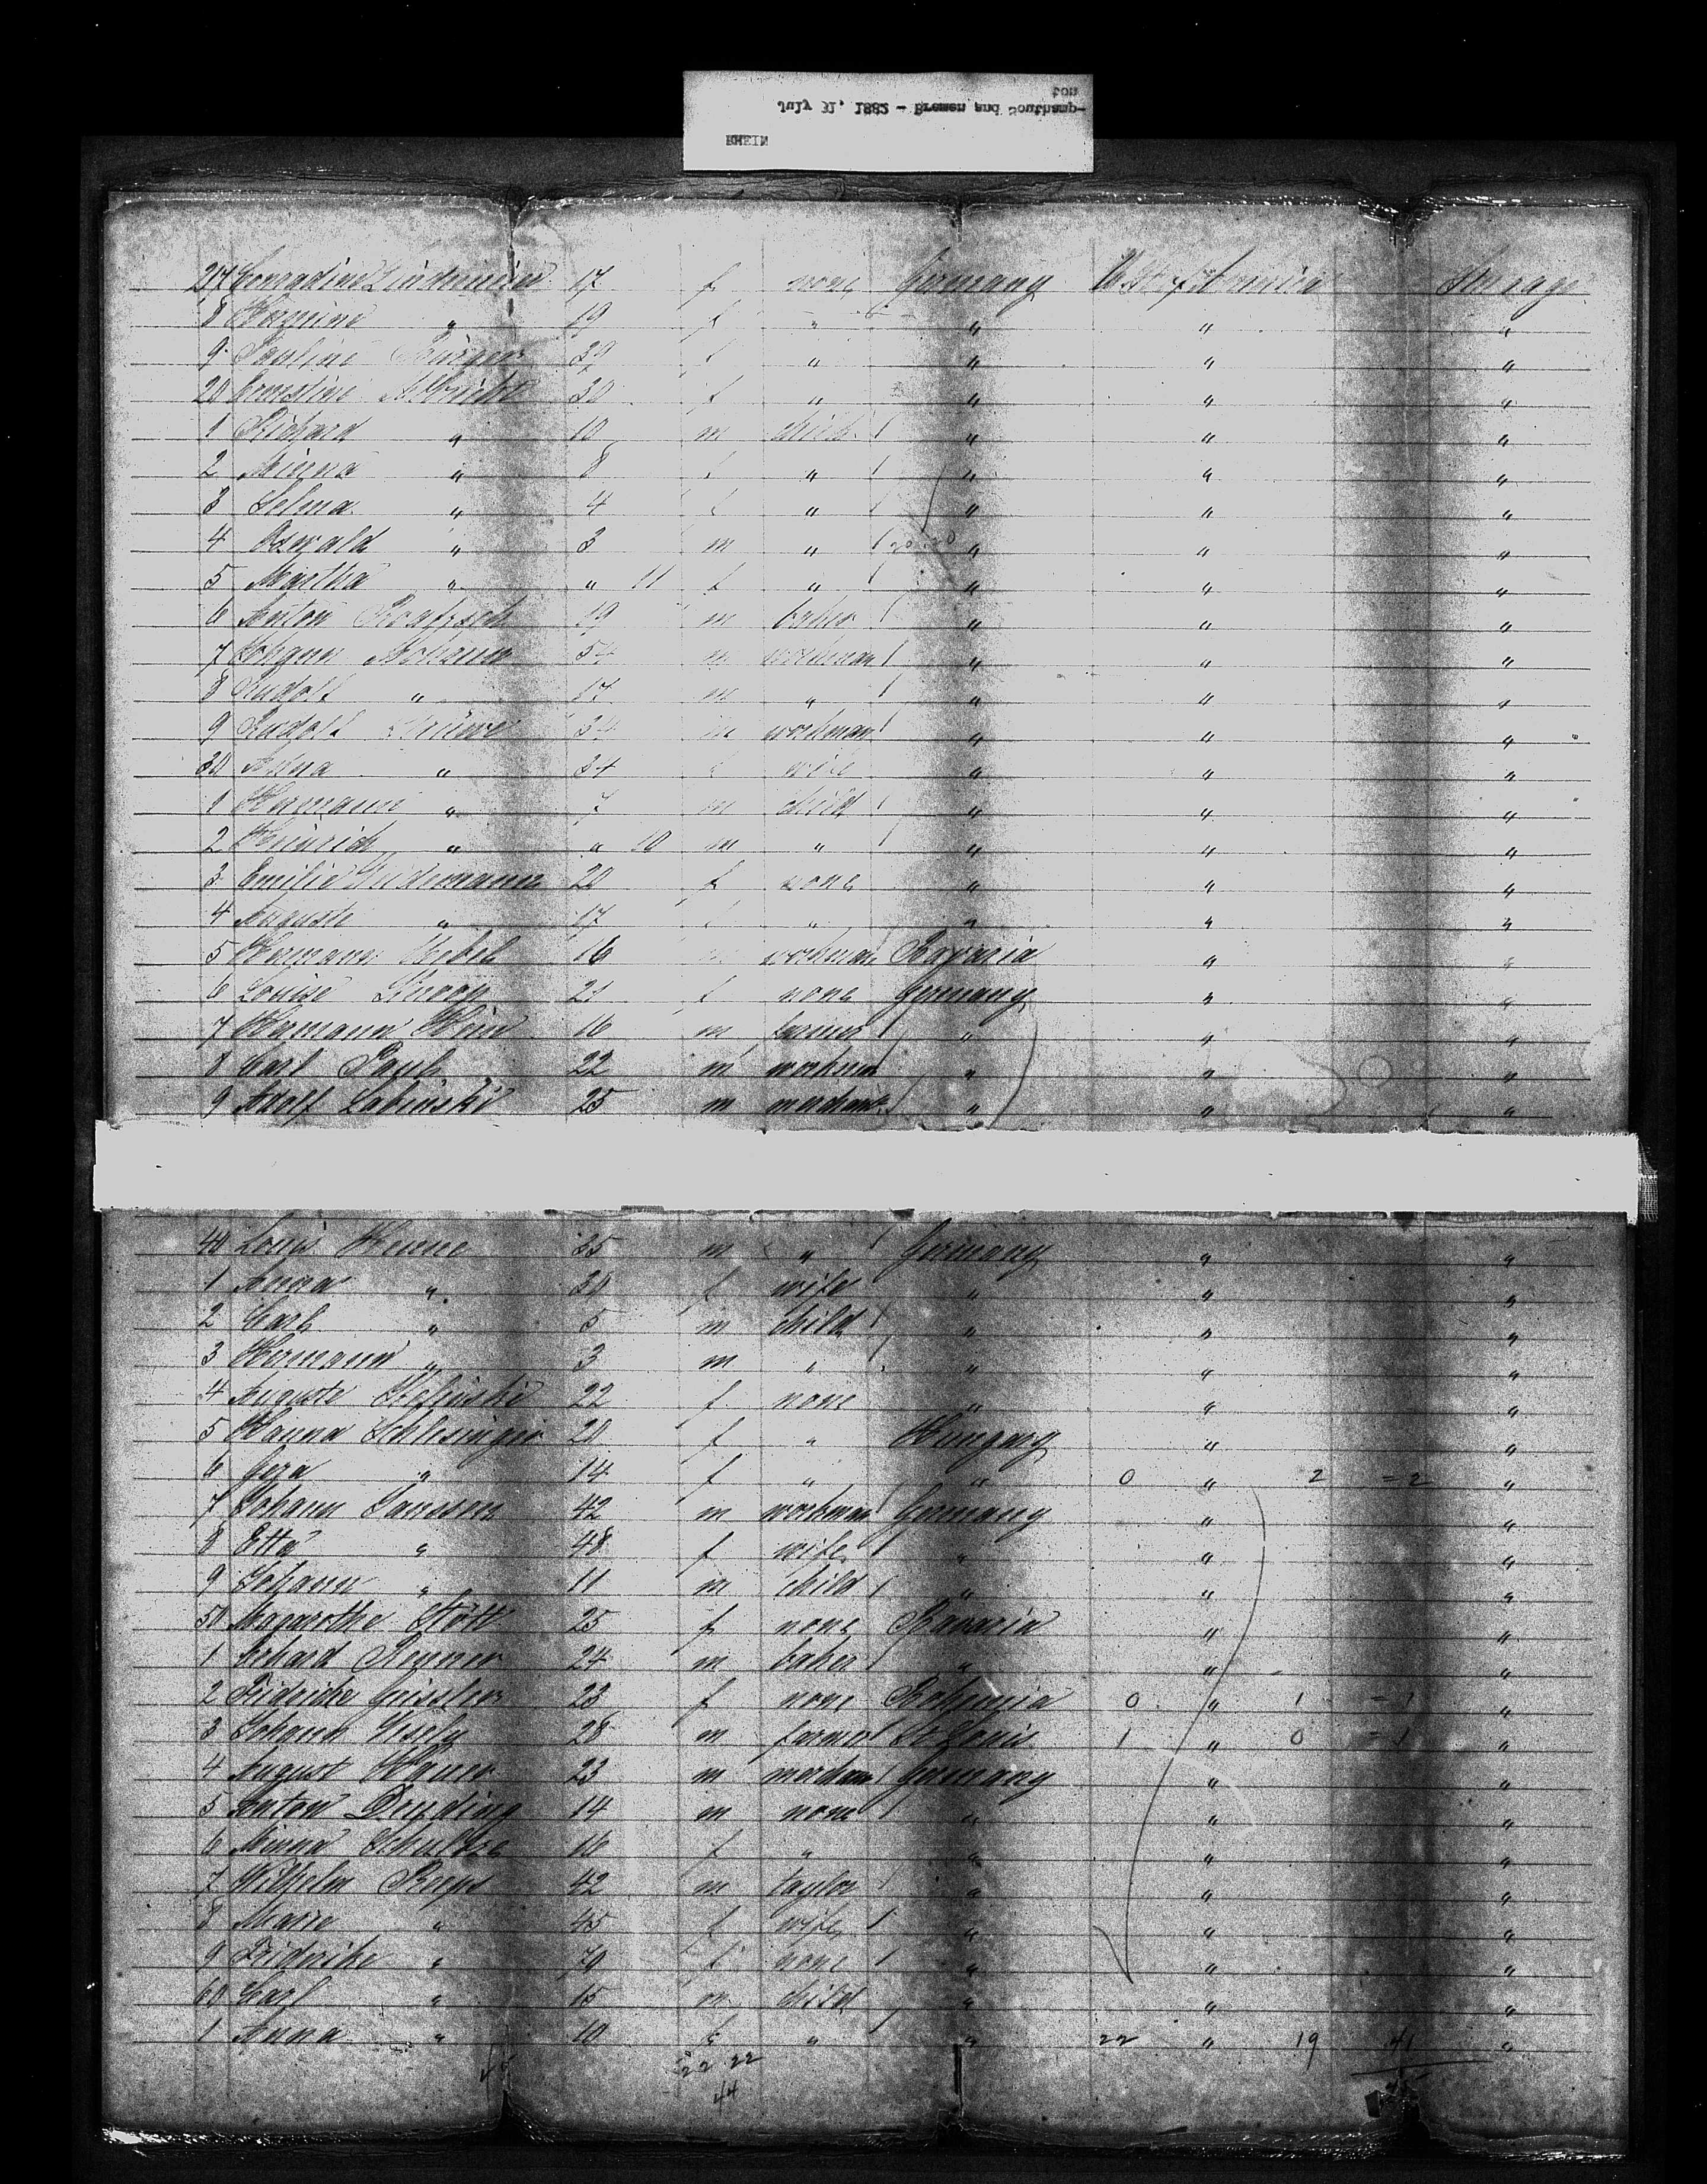 July 31, 1882 - Bremen and Southamp-
ton
RHEIN
217 Conradine Lindemeier 17 f none Germany U.S. of America Steerage
8 Hermine " 19 f " " " "
9 Pauline 39 f " " " "
20 Ernestine Albrecht 30 f " " " "
1 Richard " 10 m child " " "
2 Minna " 8 f " " " "
3 Selma " 4 f " " " "
4 Oswald " 3 m " 20 20 " " "
5 Martha " " 11 f " " " "
6 Anton 19 m baker " " "
7 Johann 54 m workman " " "
8 Rudolf " 17 m " " " "
9 Rudolf 34 m workman " " "
30 Anna " 34 f wife " " "
1 Hermann " 7 m child " " "
2 Heinrich " " 10 m " " " "
3 Emilie 20 f none " " "
4 Auguste " 17 f " " " "
5 Hermann 16 m workman Bavaria " "
6 Louise 21 f none Germany " "
7 Hermann Hein 16 m farmer " " "
8 Carl Pauls 22 m workman " " "
9 Adolf Labinski 25 m merchant " " "
40 Louis Henne 35 m " Germany " "
1 Anna " 30 f wife " " "
2 Carl " 5 m child " " "
3 Hermann " 3 m " " " "
4 Auguste 22 f none " " "
5 Hanna Schlesinger 20 f " Hungary " "
6 Geza " 14 f " " 0 " 2 =2 "
7 Johann Janssen 42 m workman Germany " "
8 Etta " 48 f wife " " "
9 Johann " 11 m child " " "
50 Margarethe Stött 25 f none Bavaria " "
1 Renner 24 m baker " " "
2 Fridricke Geissler 23 f none Bohemia 0 " 1 =1 "
3 Johann 28 m farmer St Louis 1 " 0 =1 "
4 August Hauer 23 m merchant Germany " "
5 Anton 14 m none " " "
6 Minna Schultze 16 f " " " "
7 Wilhelm Reeps 42 m taylor " " "
8 Marie " 45 f wife " " "
9 Fridericke " 70 f none " " "
60 Carl " 15 m child " " "
1 Anna " 10 f " " 22 " 19 41 "
45 22 22 45
44